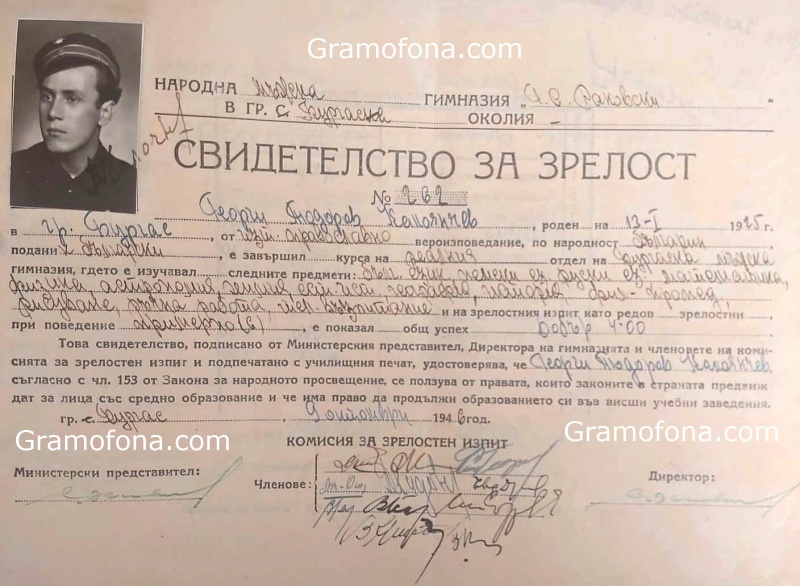 Gramofona.com
НАРОДНА мъжка ГИМНАЗИЯ „Г. С. Раковски"
В ГР. С. Бургаска ОКОЛИЯ –
СВИДЕТЕЛСТВО ЗА ЗРЕЛОСТ
№ 262
Георги Тодоров Калоянчев, роден на 13-I 1925 г.
в гр. Бургас, от изт. православно вероизповедание, по народност българин
подани к български, е завършил курса на реалния отдел на Бургаска мъжка
гимназия, гдето е изучавал следните предмети: бълг. език, немски ез. руски ез. математика,
физика, астрономия, химия, ест. ист. география, история, фил.
рисуване, ръчна работа, тел. възпитание и на зрелостния изпит като редов зрелостни
при поведение примерно (6), е показал общ успех добър 4·00
Това свидетелство, подписано от Министерския представител, Директора на гимназията и членовете на коми-
сията за зрелостен изпит и подпечатано с училищния печат, удостоверява, че Георги Тодоров Калоянчев,
съгласно с чл. 153 от Закона за народното просвещение, се ползува от правата, които законите в страната предвиж
дат за лица със средно образование и че има право да продължи образованието си във висши учебни заведения.
гр. с. Бургас, 9 октомври 1946 год.
Gramofona.com
Gramofona.com
КОМИСИЯ ЗА ЗРЕЛОСТЕН ИЗПИТ
Министерски представител:
Членове:
Директор: